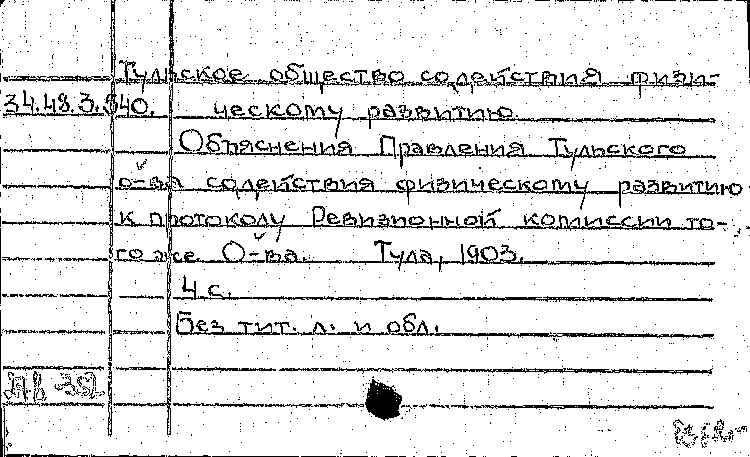 Тульское общество содействия физи-
34.48.3.340. ческому развитию.
Объяснения Правления Тульского
о-ва содействия физическому развитию
к протоколу Ревизионной комиссии то-
го же О-ва. Тула, 1903.
4 с.
Без тит. л. и обл.